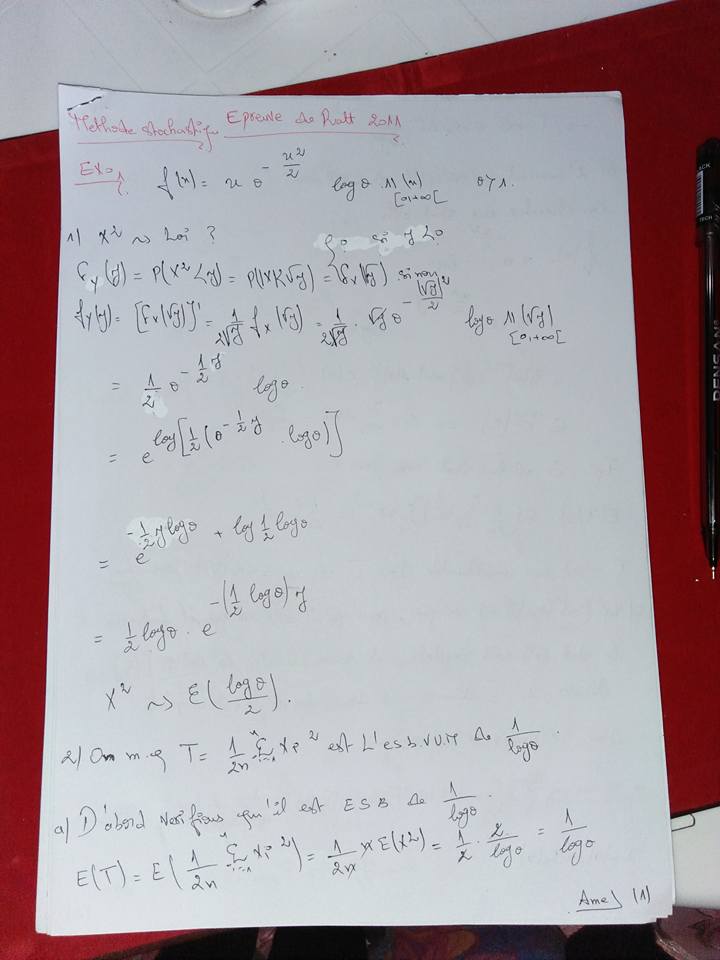 Methode stochastiq Epreuve de Ratt 2011
Exo1 f(x) = x θ^{-x²/2} logθ 𝟙_{[0,+∞[}(x) θ>1.
1) X² ~ Loi ?
{0 si y<0
F_Y(y) = P(X² < y) = P(|X|<√y) = F_X(√y) sinon
f_Y(y) = [F_X(√y)]' = 1/(2√y) f_X(√y) = 1/(2√y) · √y θ^{-(√y)²/2} logθ 𝟙_{[0,+∞[}(√y)
= 1/2 θ^{-1/2 y} logθ.
= e^{log[1/2(θ^{-1/2 y} · logθ)]}
= e^{-1/2 y logθ + log 1/2 logθ}
= 1/2 logθ · e^{-(1/2 logθ) y}
X² ~ E(logθ/2).
2) On m. q T = 1/2n Σ_{i=1}^n Xi² est L'esb.V.U.M de 1/logθ.
a) D'abord Verifions qu'il est ESB de 1/logθ.
E(T) = E(1/2n Σ_{i=1}^n Xi²) = 1/2n n E(X²) = 1/2 · 2/logθ = 1/logθ
Amel (1)
PENSAN